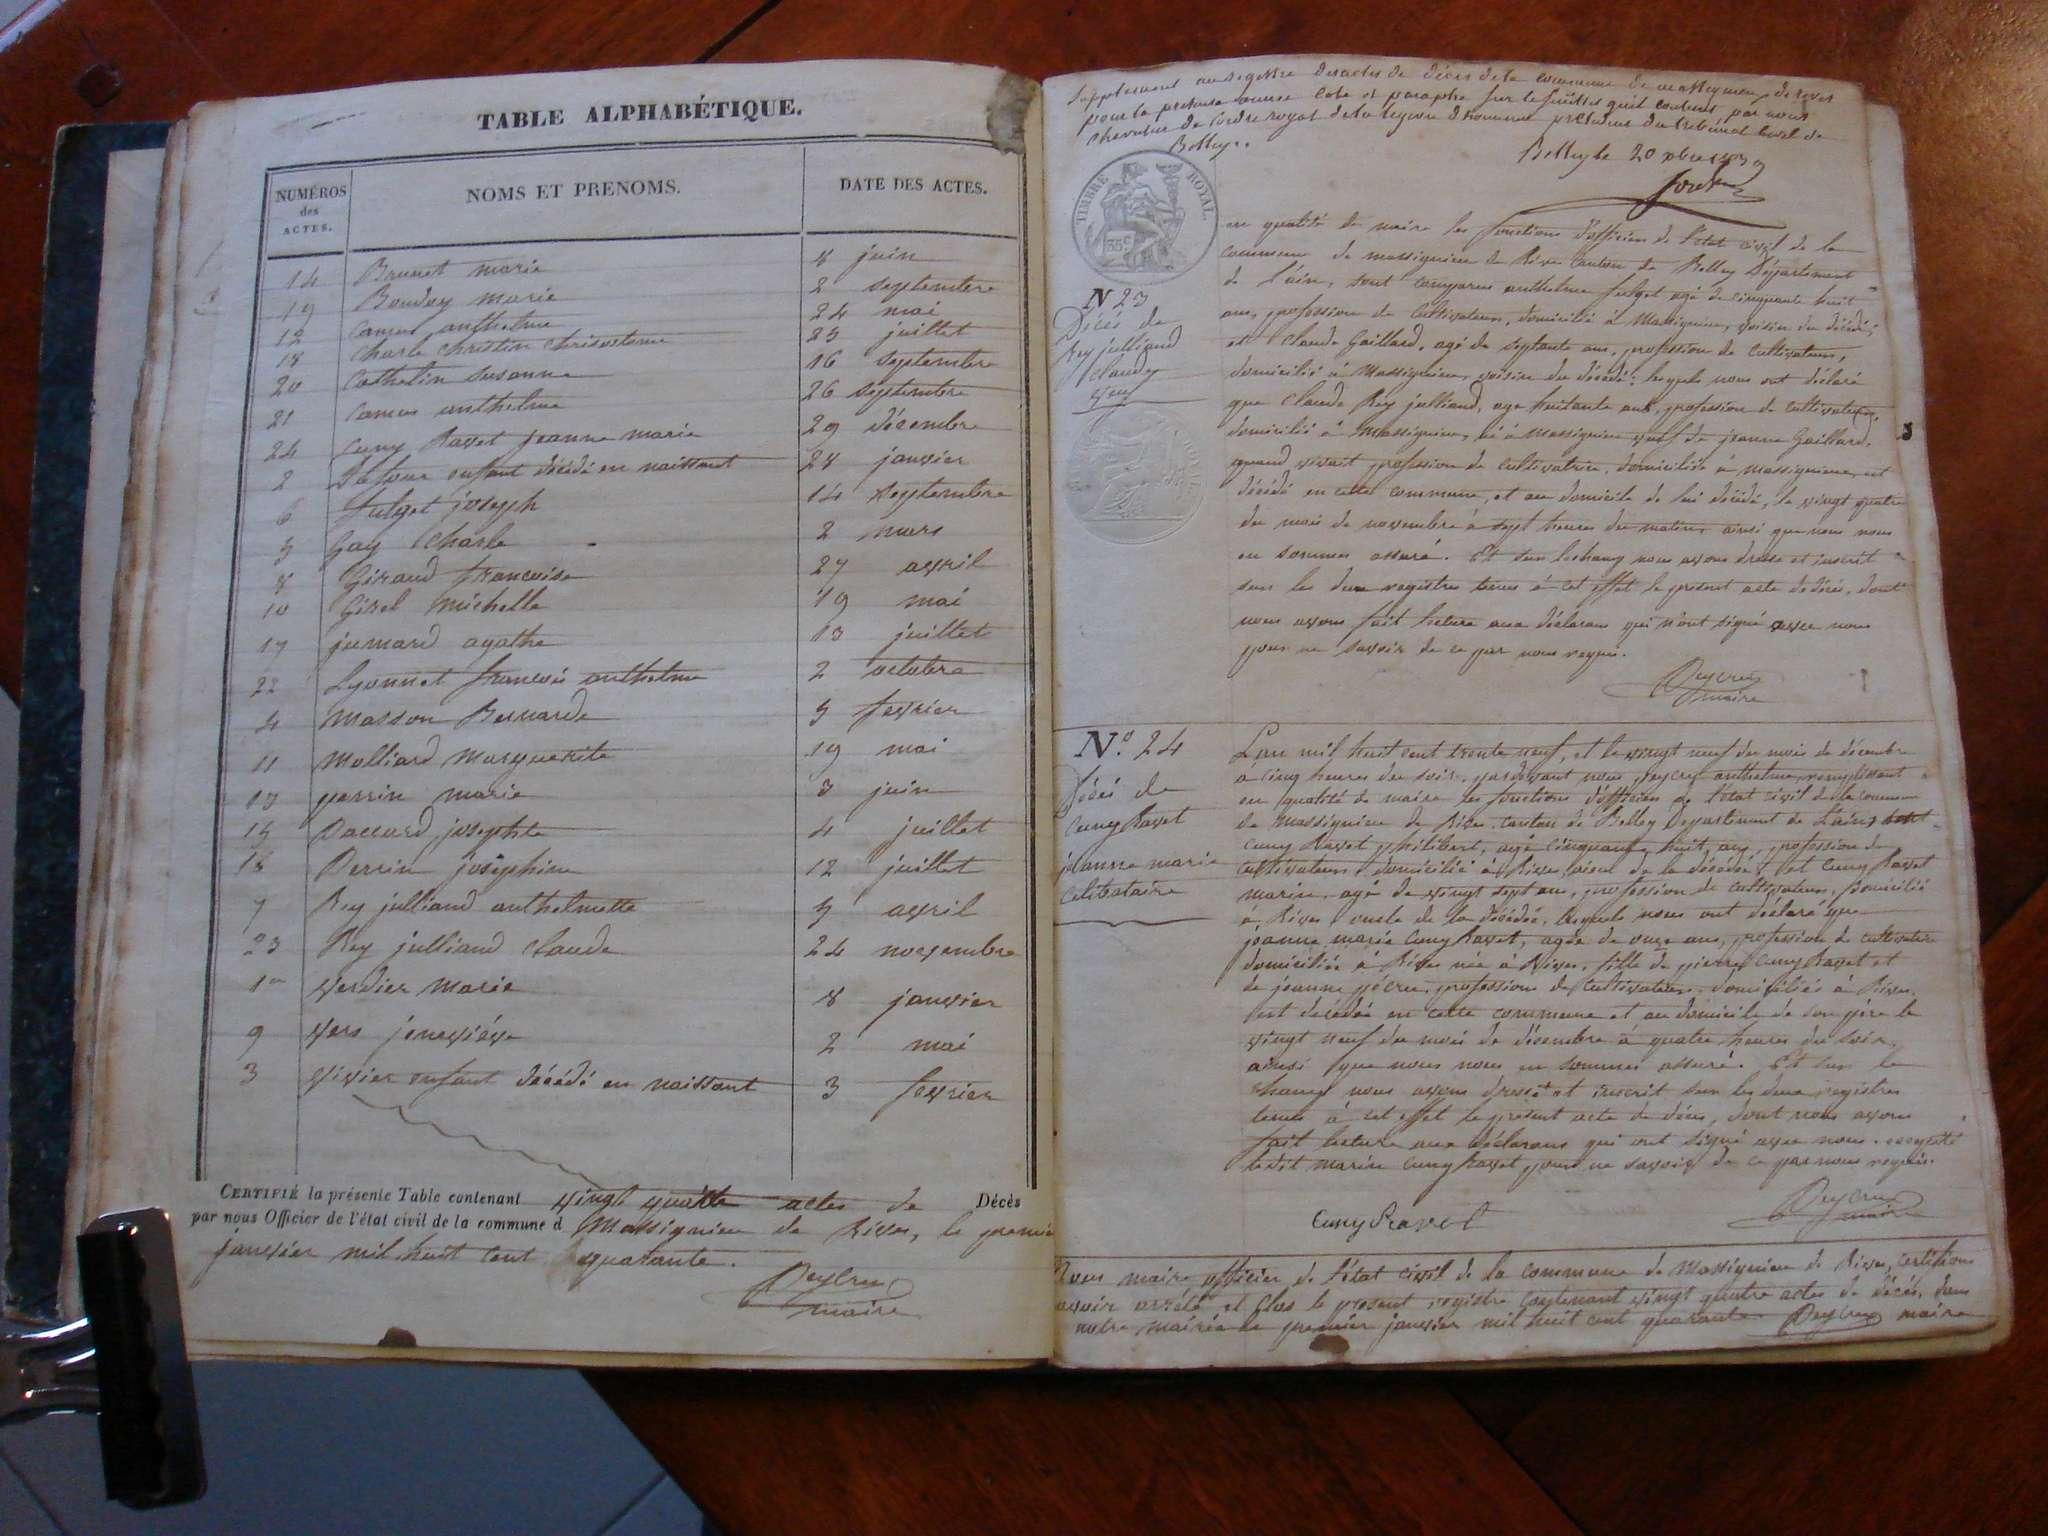 TABLE ALPHABÉTIQUE.
NUMÉROS des ACTES. NOMS ET PRENOMS. DATE DES ACTES.
14 Brunet marie 8 juin
19 Boudoy marie 2 septembre
12 camus anthelme 24 mai
18 Charle christin chrisostome 23 juillet
20 Cathelin susanne 16 septembre
21 camus anthelme 26 septembre
24 cuny Ravet jeanne marie 29 décembre
2 enfant décédé en naissant 28 janvier
6 fulget joseph 14 septembre
5 Gay Charle 2 mars
8 Giraud francoise 27 avril
10 Girel michelle 19 mai
17 jumard agathe 13 juillet
22 Lyonnet francois anthelme 2 octobre
4 masson Bernarde 5 fevrier
11 Molliard Marguerite 19 mai
13 perrin marie 3 juin
15 Daccard josephte 4 juillet
16 Perrin josephine 12 juillet
7 Rey julliand anthelmette 5 avril
23 Rey julliand claude 24 novembre
1er Verdier marie 8 janvier
9 Vers jeneviéve 2 mai
3 Vivier enfant décédé en naissant 3 fevrier
CERTIFIÉ la présente Table contenant vingt quatre actes de Décès
par nous Officier de l'état civil de la commune d Massignieu de Rives, le premier
janvier mil huit cent quarante.
Peycru
maire
Supplement au registre des actes de décès de la commune de massigneux de rives
pour la presente année Coté et paraphé sur le feuillet qu'il contient par nous
chevalier de l'ordre royal de la legion d'honneur président du tribunal civil de
Belley.
Belley le 20 xbre 1839
TIMBRE ROYAL.
35 c
en qualité de maire les fonctions d'officier de l'état civil de la
commune de massignieu de Rives canton de Belley Département
de l'ain, sont comparus anthelme fulget agé de cinquante huit
ans, profession de cultivateur, domicilié à Massignieu, voisin du décédé,
et Claude Gaillard, agé de septante ans, profession de cultivateur,
domicilié à Massignieu, voisin du décédé; lesquels nous ont déclaré
que Claude Rey julliand, age huitante ans, profession de cultivateur,
domicilié à Massignieu, né à Massignieu veuf de jeanne Gaillard,
quand vivait profession de cultivatrice, domiciliée à massignieu, est
décédé en cette commune, et au domicile de lui décédé, le vingt quatre
du mois de novembre à sept heures du matin, ainsi que nous nous
en sommes assuré. Et sur lechamp nous avons dressé et inscrit
sur les deux registres tenus à cet effet le present acte de décés, dont
nous avons fait lecture aux déclarans qui n'ont signé avec nous
pour ne savoir de ce par nous requis.
Peycru
maire
N 23
Décés de
Rey julliand
claude
veuf
N.o 24
Décés de
Cuny Ravet
jeanne marie
celibataire
L'an mil huit cent trente neuf, et le vingt neuf du mois de décembre
à cinq heures du soir, pardevant nous peycru anthelme remplissant
en qualité de maire les fonctions d'officier de l'état civil de la commune
de Massignieu de Rives, canton de Belley Departement de L'ain, sont
Cuny Ravet philibert, agé cinquante huit, ans, profession de
cultivateur, domicilié à Rives aieul de la décédée; et Cuny Ravet
marin, agé de vingt sept ans, profession de cultivateur, Domicilié
à Rives oncle de la décédée, lesquels nous ont déclaré que
jeanne marie Cuny Ravet, agée de onze ans, profession de cultivatrice
domiciliée à Rives née à Rives, fille de pierre Cuny Ravet et
de jeanne pécru, profession de cultivateurs, domiciliés à Rives,
est décédée en cette commune et au domicile de son père le
vingt neuf du mois de décembre à quatre heures du soir,
ainsi que nous nous en sommes assuré. Et sur le
champ nous avons dressé et inscrit sur les deux registres
tenus à cet effet le présent acte de décès, dont nous avons
fait lecture aux déclarans qui ont signé avec nous, excepté
ledit marin Cuny Ravet pour ne savoir de ce par nous requis.
Cuny Ravet
Peycru
maire
Nous maire officier de l'état civil de la commune de Massignieu de Rives, certifions
avoir arrété et clos le present registre contenant vingt quatre actes de décés, dans
notre mairie le premier janvier mil huit cent quarante. Peycru maire